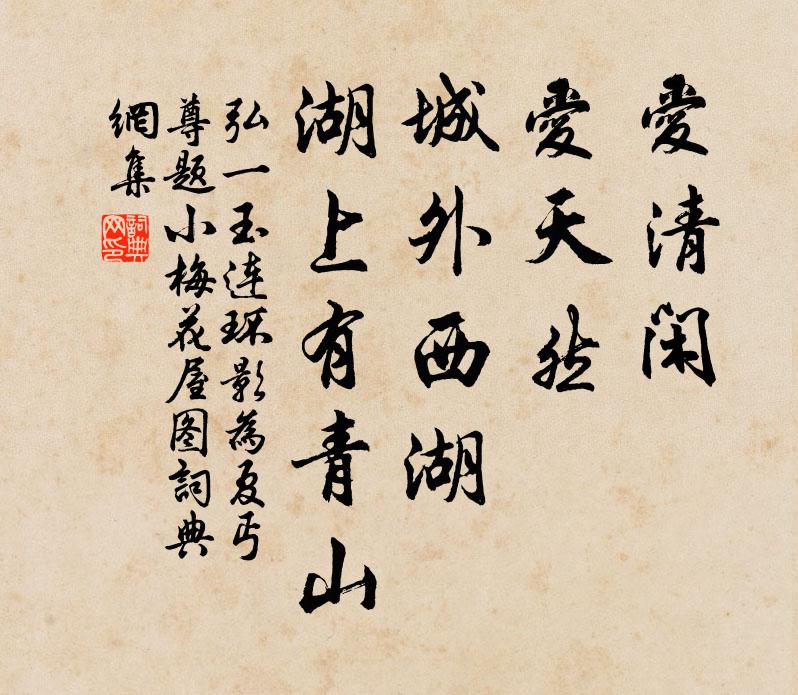 愛清閑
愛天然
城外西湖
湖上有青山
弘一玉連环影為夏丏
尊題小梅花屋图詞典
網集
詞典
网印